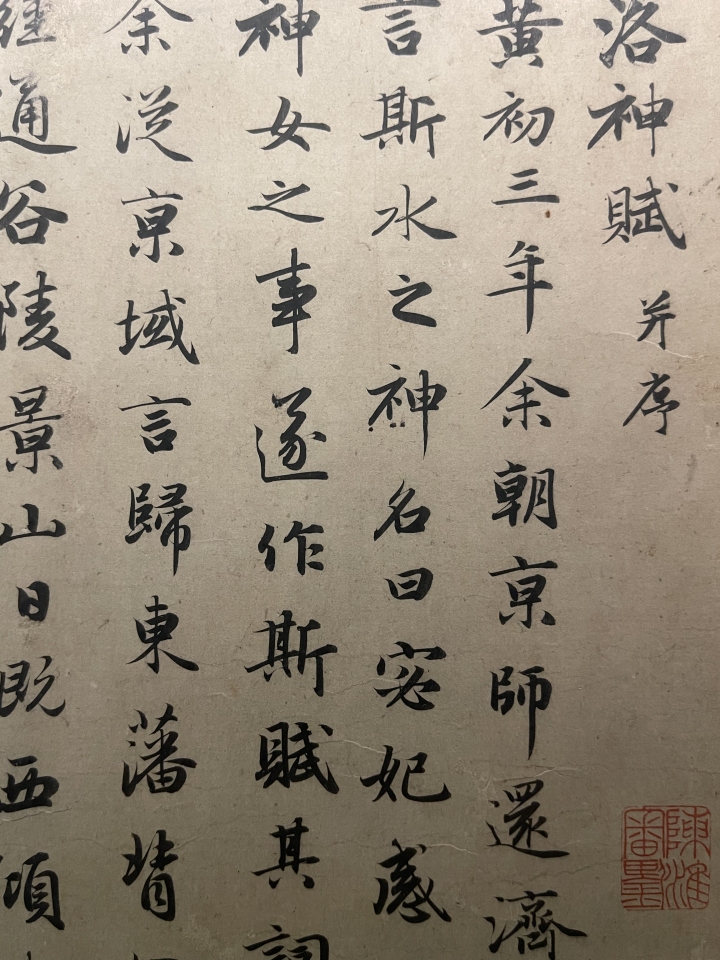 洛神賦 并序
黄初三年余朝京師還濟
言斯水之神名曰宓妃感
神女之事遂作斯賦其詞
余従京域言歸東藩背
經通谷陵景山日既西傾
陳淮